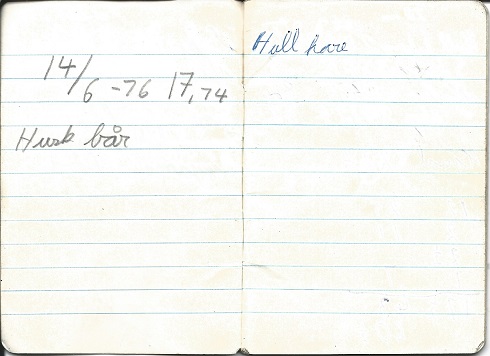 14/6 -76 17,74
Husk bår
Hall hare